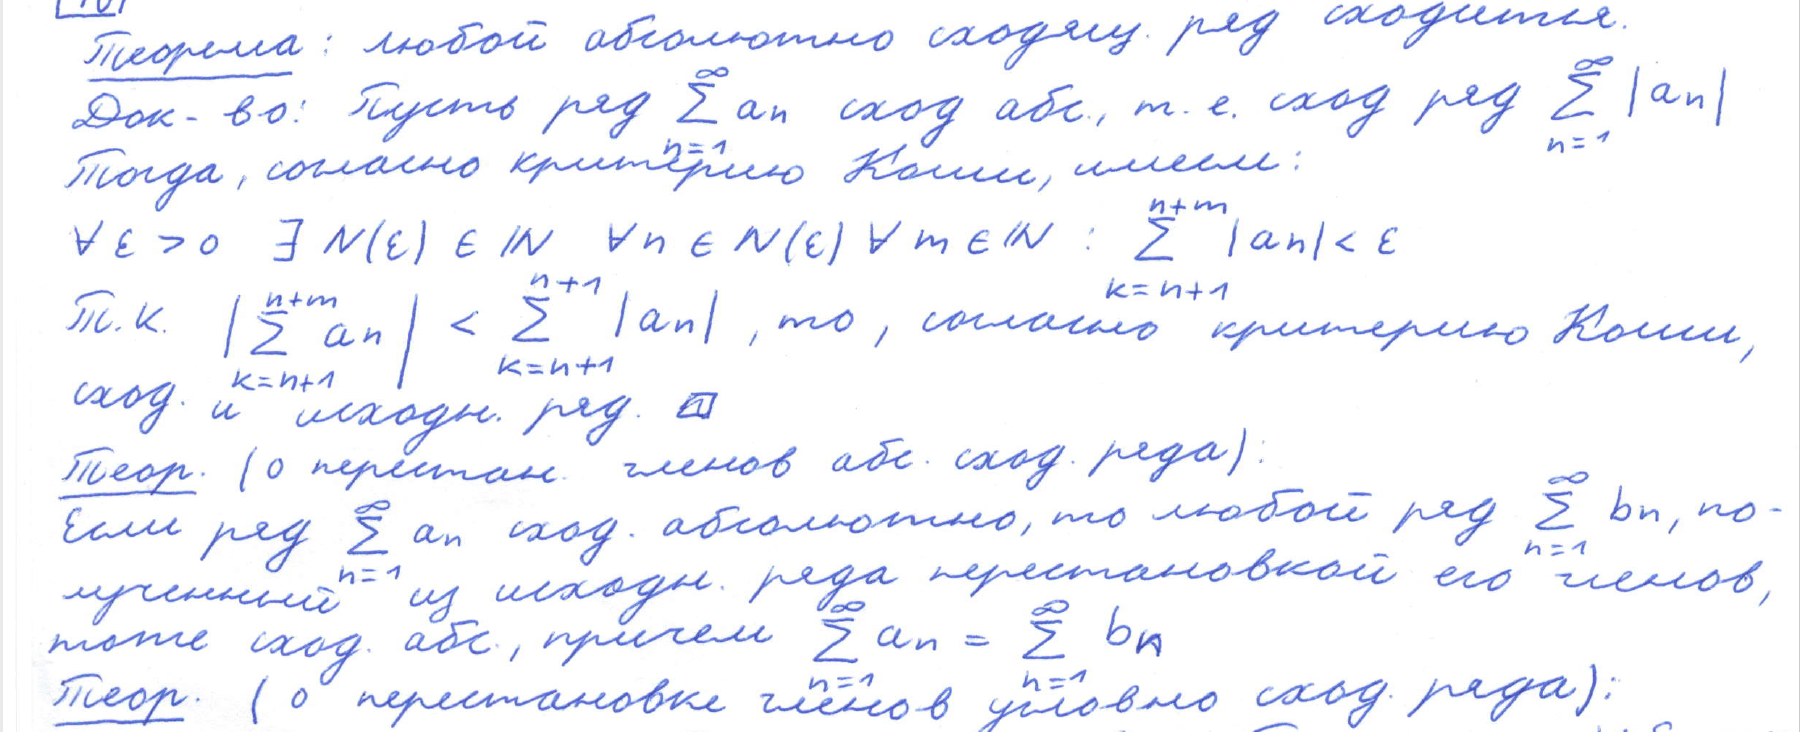 Теорема: любой абсолютно сходящ. ряд сходится.
Док-во: Пусть ряд ∑_{n=1}^{∞} an сход абс., т.е. сход ряд ∑_{n=1}^{∞} |an|
Тогда, согласно критерию Коши, имеем:
∀ ε > 0 ∃ N(ε) ∈ ℕ ∀n ∈ N(ε) ∀ m ∈ ℕ : ∑_{k=n+1}^{n+m} |an| < ε
Т.к. |∑_{k=n+1}^{n+m} an| < ∑_{k=n+1}^{n+1} |an|, то, согласно критерию Коши,
сход. и исходн. ряд.
Теор. (о перестан. членов абс. сход. ряда):
Если ряд ∑_{n=1}^{∞} an сход. абсолютно, то любой ряд ∑_{n=1}^{∞} bn, по-
лученный из исходн. ряда перестановкой его членов,
тоже сход. абс., причем ∑_{n=1}^{∞} an = ∑_{n=1}^{∞} bn
Теор. (о перестановке членов условно сход. ряда):